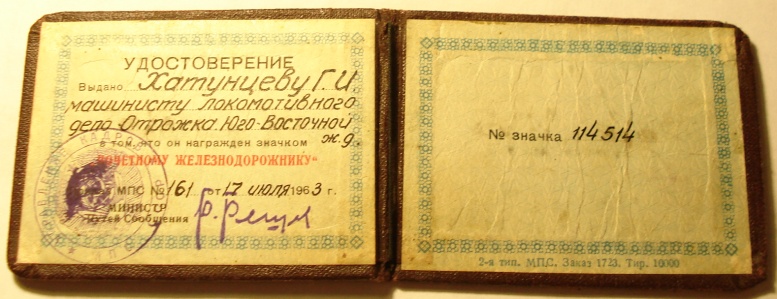 УДОСТОВЕРЕНИЕ
Выдано Хатунцеву Г.И.
машинисту локомотивного
депо Отрожка Юго-Восточной
ж.д.
в том, что он награжден значком
ПОЧЕТНОМУ ЖЕЛЕЗНОДОРОЖНИКУ“
МПС № 161 от 17 июля 1963 г.
МИНИСТР
Путей Сообщения
№ значка 114514
2-я тип. МПС. Заказ 1723. Тир. 10000